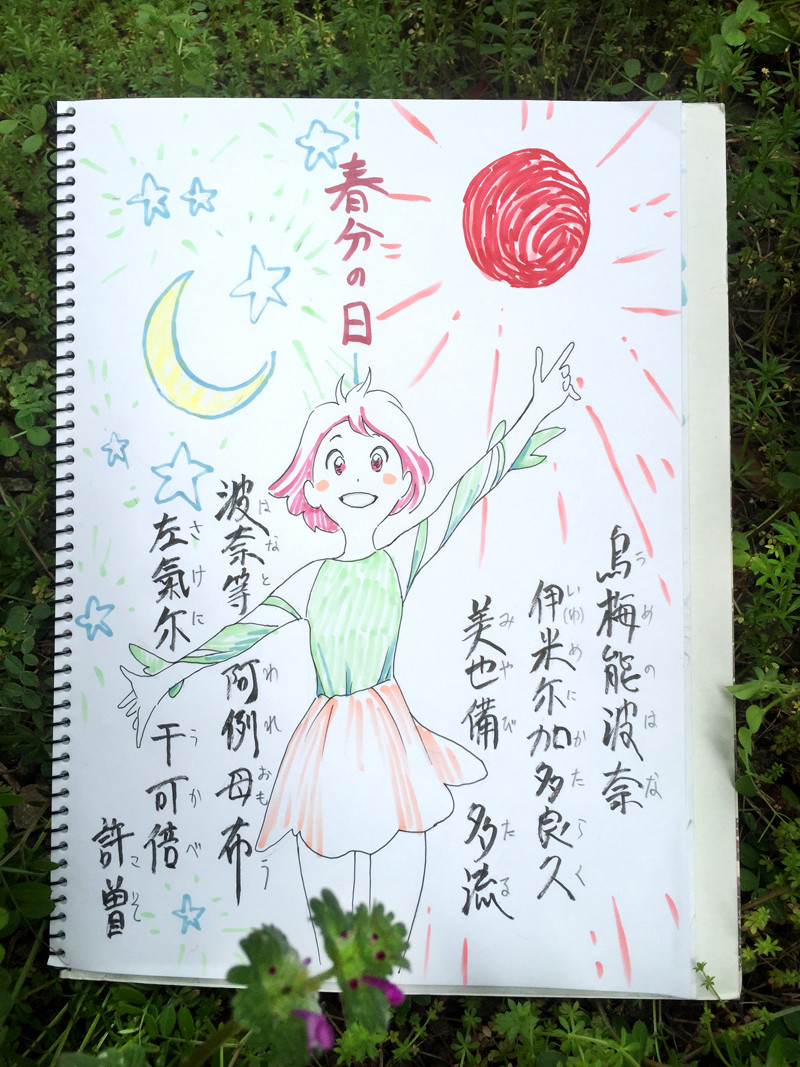 春分の日
烏梅能波奈
うめのはな
伊米尔加多良久
い(ゆ)めにかたらく
美也備 多流
みやび たる
波奈等 阿例母布
はなと われおもう
左氣尔 干可倍
さけに うかべ
許曽
こそ